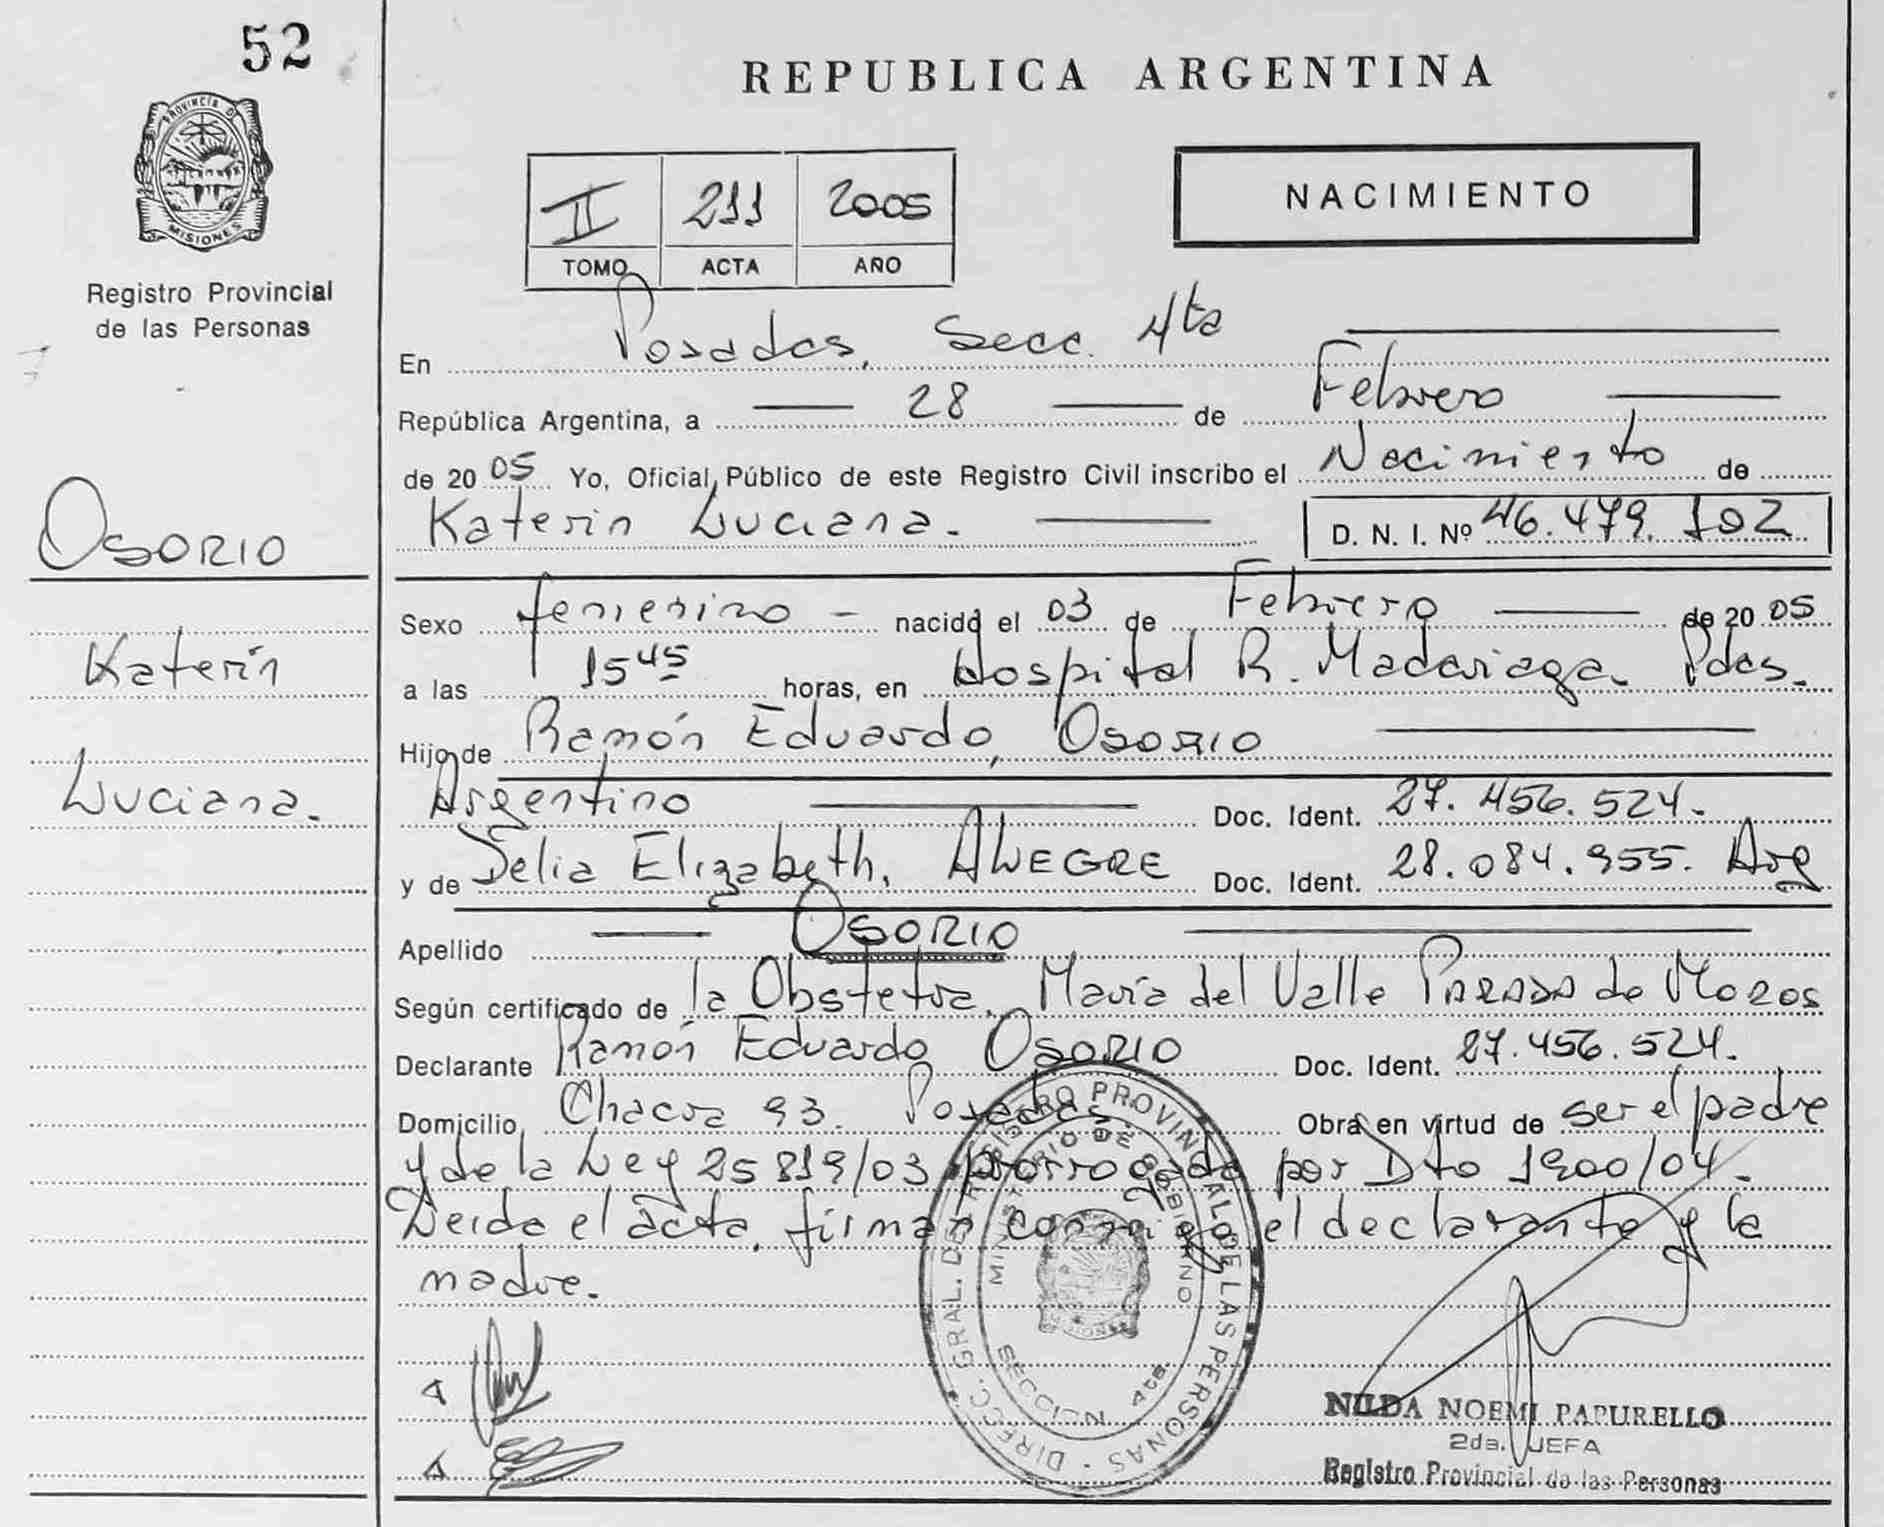 52
PROVINCIA DE
MISIONES
Registro Provincial
de las Personas
OSORIO
Katerin
Luciana.
REPUBLICA ARGENTINA
II 211 2005
TOMO ACTA AÑO
NACIMIENTO
En Posadas, Secc. 4ta
República Argentina, a 28 de Febrero
de 2005 Yo, Oficial Público de este Registro Civil inscribo el Nacimiento de
Katerin Luciana. D. N. I. Nº 46.479.102
Sexo femenino - nacido el 03 de Febrero de 2005
a las 15 45 horas, en Hospital R. Madariaga. Pdas.
Hijo de Ramón Eduardo, OSORIO
Argentino Doc. Ident. 27.456.524.
y de Delia Elizabeth, ALEGRE Doc. Ident. 28.084.955. Arg
Apellido OSORIO
Según certificado de la Obstetra, María del Valle PARADA de MOROS
Declarante Ramón Eduardo OSORIO Doc. Ident. 27.456.524.
Domicilio Chacra 93. Posadas. Obra en virtud de ser el padre
y de la Ley 25819/03 prorrogada por Dto 1900/04.
Leida el acta, firman conmigo el declarante y la
madre.
DIRECC. GRAL. DEL REGISTRO PROVINCIAL DE LAS PERSONAS
MINISTERIO DE GOBIERNO
SECCION 4ta.
NILDA NOEMI PAPURELLO
2da. JEFA
Registro Provincial de las Personas